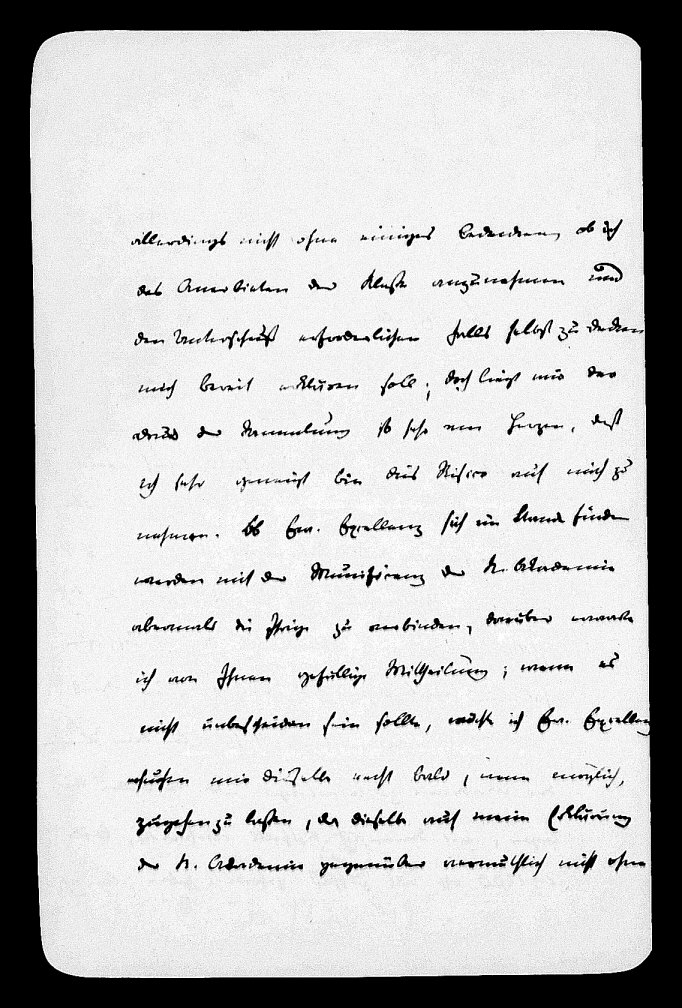 allerdings nicht ohne einiges Bedenken, ob ich
das Anerbieten der Klasse anzunehmen und
den Unterschuß erforderlichen Falls selbst zu decken
mich bereit erklären soll; doch liegt mir der
Druck der Sammlung so sehr am Herzen, daß
ich sehr geneigt bin das Risico auf mich zu
nehmen. Ob Ew. Excellenz sich im Stande finden
werden mit der Munificenz der K. Akademie
abermals die Ihrige zu verbinden, darüber erwarte
ich von Ihnen gefällige Mittheilung; wenn es
nicht unbescheiden sein sollte, möchte ich Ew. Excellenz
ersuchen mir dieselbe recht bald, wenn möglich,
zugehen zu lassen, da dieselbe auf meine Erklärung
der K. Akademie gegenüber vermuthlich nicht ohne